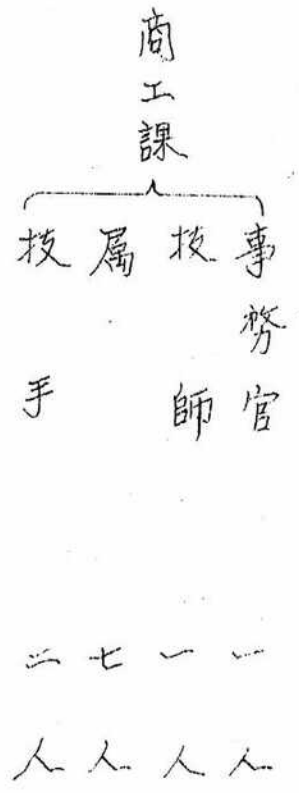 商工課
事務官 一人
技師 一人
属 七人
技手 二人